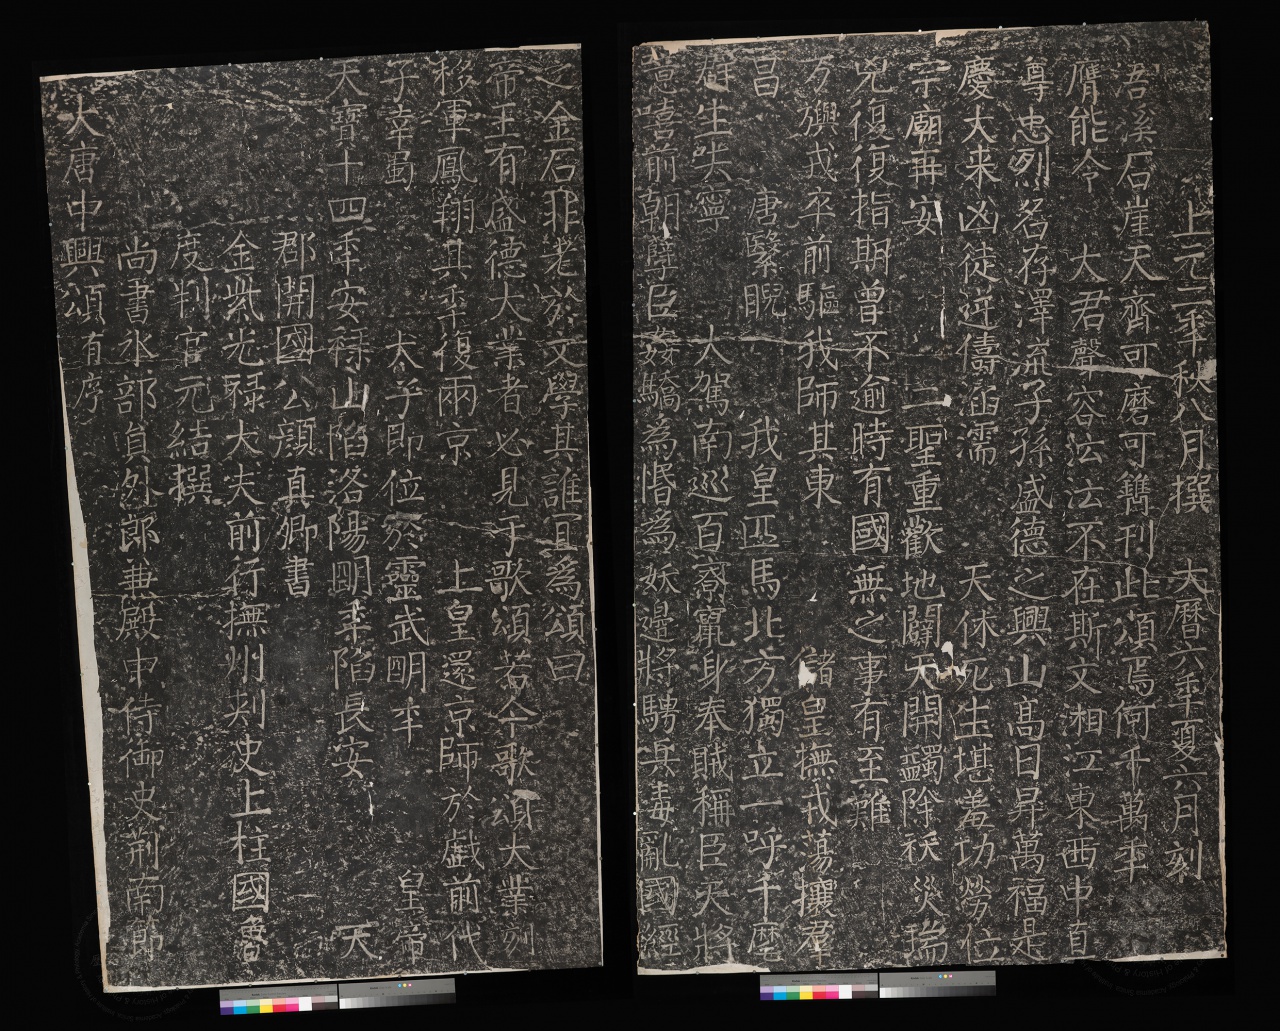 大唐中興頌有序
尚書水部員外郎兼殿中侍御史荊南節
度判官元結撰
金紫光祿大夫前行撫州刺史上柱國魯
郡開國公顏真卿書
天寶十四年安祿山陷洛陽明年陷長安 天
子幸蜀 太子即位於靈武明年 皇帝
移軍鳳翔其年復兩京 上皇還京師於戲前代
帝王有盛德大業者必見于歌頌若今歌頌大業刻
之金石非老於文學其誰宜為頌曰
噫嘻前朝孽臣姦驕為惛為妖邊將騁兵毒亂國經
群生失寧 大駕南巡百寮竄身奉賊稱臣天將
昌 唐繄睨 我皇匹馬北方獨立一呼千麾
万旟戎卒前驅我師其東 儲皇撫戎蕩攘群
兇復復指期曾不逾時有國無之事有至難
宗廟再安 二聖重歡地闢天開蠲除祅災瑞
慶大来凶徒逆儔涵濡 天休死生堪羞功勞位
尊忠烈名存澤流子孫盛德之興山高日昇萬福是
膺能令 大君聲容沄沄不在斯文湘江東西中直
浯溪石崖天齊可磨可鐫刊此頌焉何千萬年
上元二年秋八月撰 大曆六年夏六月刻